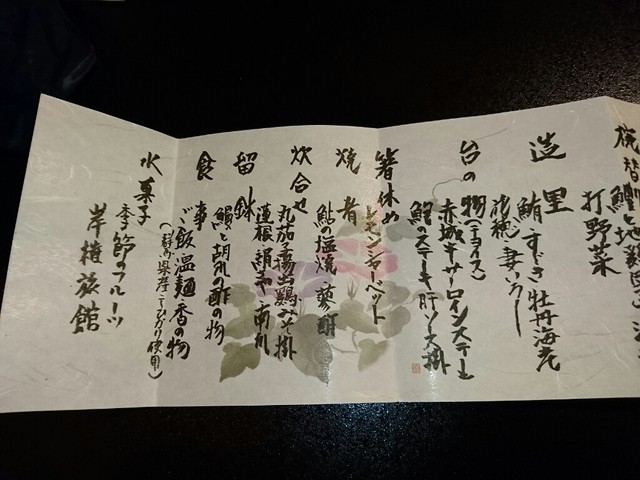 打野菜
造里
鮪 すずき 牡丹海老
花穂 妻いろ〱
台の物(チョイス)
赤城牛サーロインステーキ
鮑のステーキ肝ソース掛
箸休め
レモンシャーベット
焼肴
鮎の塩焼 蓼酢
炊合せ
丸茄子 湯出鶏みそ掛
蓮根 絹さや 南瓜
留鉢
鰻と胡瓜の酢の物
食事
ご飯 温麺 香の物
(群馬県産こしひかり使用)
水菓子
季節のフルーツ
岸権旅館